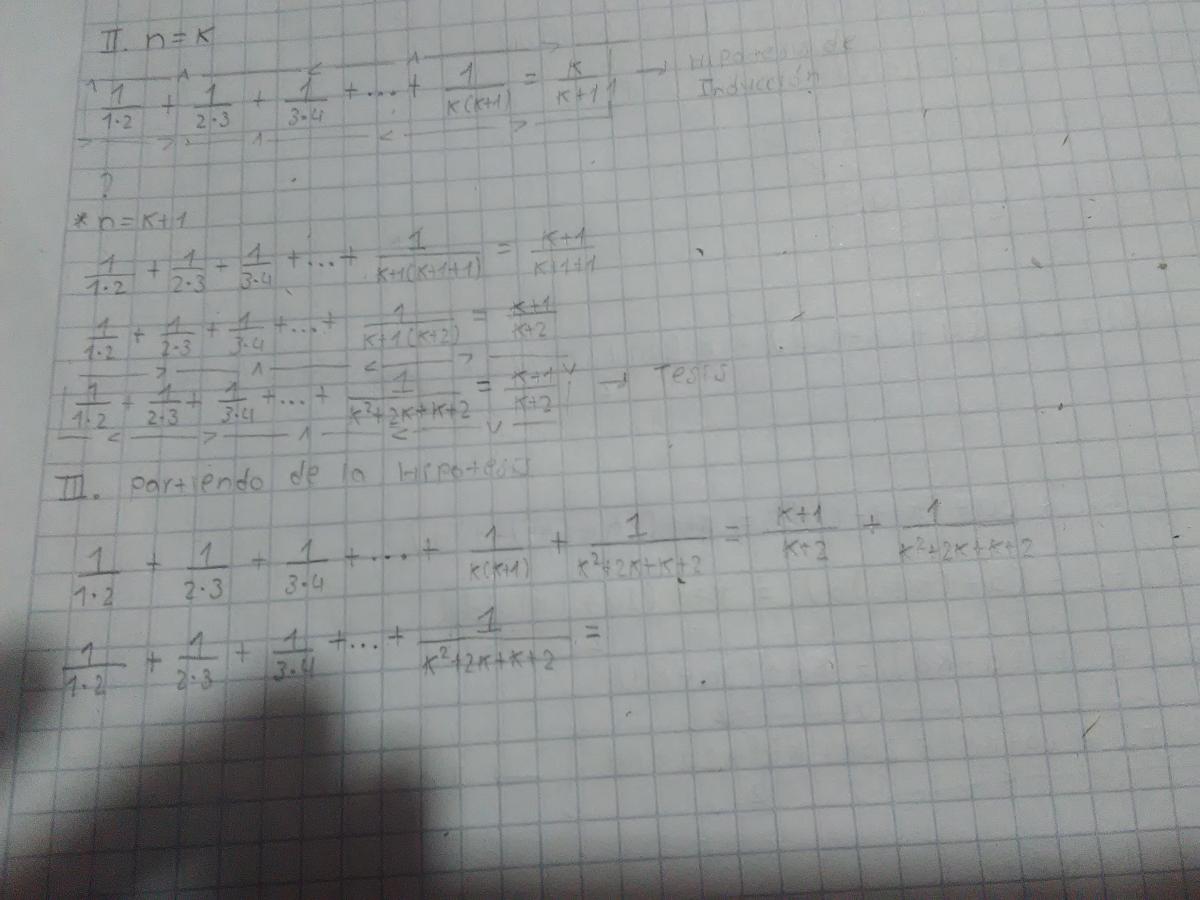 II. n=k
1/1·2 + 1/2·3 + 1/3·4 +...+ 1/k(k+1) = k/k+1 → Hipotesis de
Inducción
?
* n=k+1
1/1·2 + 1/2·3 + 1/3·4 +...+ 1/k+1(k+1+1) = k+1/k+1+1
1/1·2 + 1/2·3 + 1/3·4 +...+ 1/k+1(k+2) = k+1/k+2
1/1·2 + 1/2·3 + 1/3·4 +...+ 1/k²+2k+k+2 = k+1/k+2 → Tesis
III. partiendo de la Hipotesis
1/1·2 + 1/2·3 + 1/3·4 +...+ 1/k(k+1) + 1/k²+2k+k+2 = k+1/k+2 + 1/k²+2k+k+2
1/1·2 + 1/2·3 + 1/3·4 +...+ 1/k²+2k+k+2 =